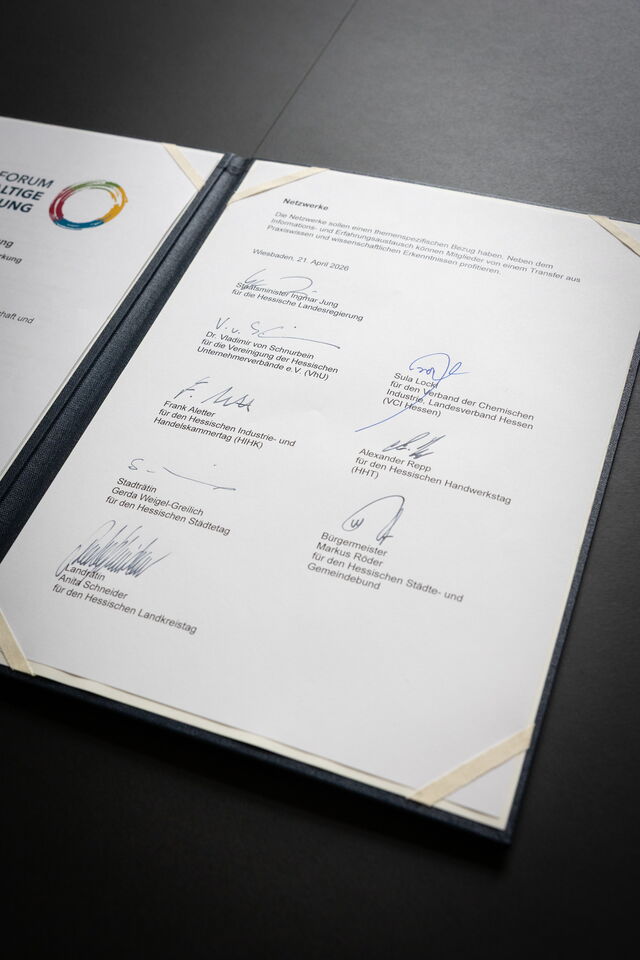 FORUM
ALTIGE
UNG
ng
rkung
schaft und
Netzwerke
Die Netzwerke sollen einen themenspezifischen Bezug haben. Neben dem
Informations- und Erfahrungsaustausch können Mitglieder von einem Transfer aus
Praxiswissen und wissenschaftlichen Erkenntnissen profitieren.
Wiesbaden, 21. April 2026
Staatsminister Ingmar Jung
für die Hessische Landesregierung
V. v. Sch
Dr. Vladimir von Schnurbein
für die Vereinigung der Hessischen
Unternehmerverbände e.V. (VhU)
Sula Lockl
für den Verband der Chemischen
Industrie, Landesverband Hessen
(VCI Hessen)
Frank Aletter
für den Hessischen Industrie- und
Handelskammertag (HIHK)
Alexander Repp
für den Hessischen Handwerkstag
(HHT)
Stadträtin
Gerda Weigel-Greilich
für den Hessischen Städtetag
Bürgermeister
Markus Röder
für den Hessischen Städte- und
Gemeindebund
Landrätin
Anita Schneider
für den Hessischen Landkreistag